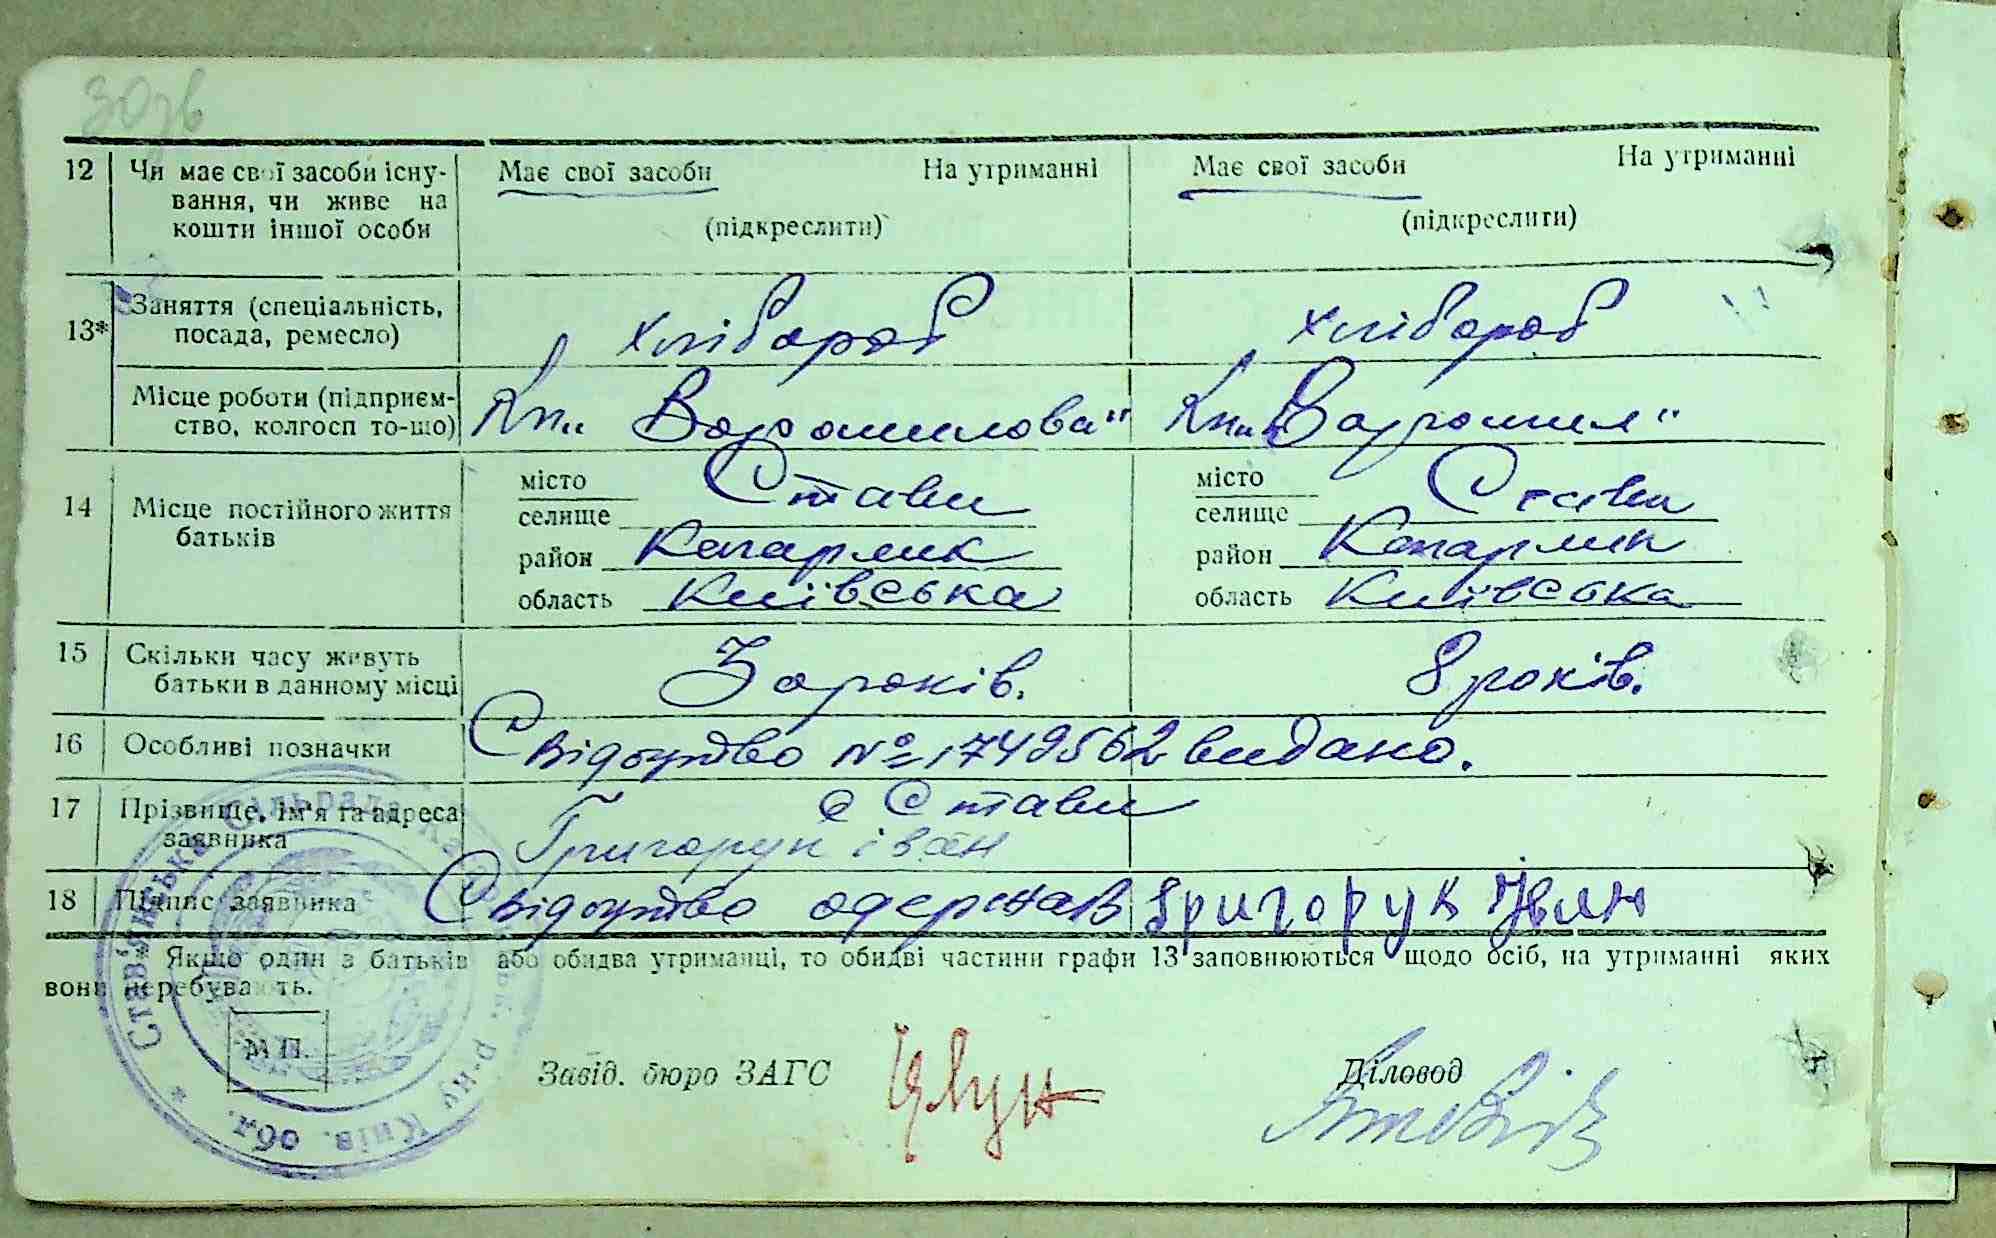 30зв
12 Чи має свої засоби існу- Має свої засоби На утриманні Має свої засоби На утриманні
вання, чи живе на
кошти іншої особи (підкреслити) (підкреслити)
13* Заняття (спеціальність, хлібороб хлібороб
посада, ремесло)
Місце роботи (підприєм- Кп „Ворошилова“ Кп „Ворошил“
ство, колгосп то-що)
14 Місце постійного життя батьків місто Стави місто Стави
селище селище
район Кагарлик район Кагарлик
область Київська область Київська
15 Скільки часу живуть 30 років. 8 років.
батьки в данному місці
16 Особливі позначки Свідоцтво № 1749562 видано.
17 Прізвище, ім'я та адреса с Стави
заявника Григорук іван
18 Підпис заявника Свідоцтво одержав Григорук Іван
* Якщо один з батьків або обидва утриманці, то обидві частини графи 13 заповнюються щодо осіб, на утриманні яких
вони перебувають.
М П.
Завід. бюро ЗАГС Діловод
Став'янська Сільрада р-ну Київ. обл.